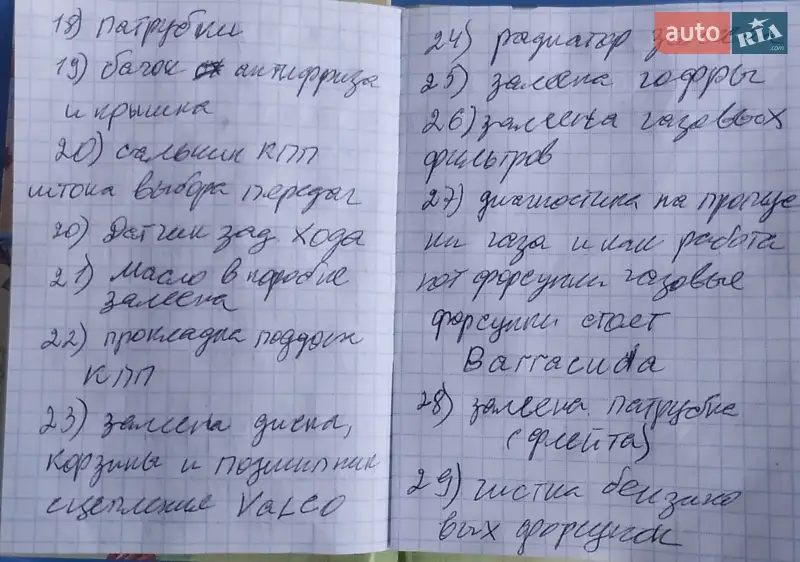 18) патрубки
19) бачок антифриза
и крышка
20) сальник КПП
штока выбора передач
20) Датчик зад хода
21) Масло в коробке
замена
22) прокладка поддон
КПП
23) замена диска,
корзины и подшипник
сцепления Valeo
24) радиатор
25) замена гофры
26) замена газовых
фильтров
27) диагностика на протуже
ки газа и как работа
ют форсунки газовые
форсунки стоет
Barracuda
28) замена патрубка
(флейта)
29) чистка бензино
вых форсунок
auto RIA .com